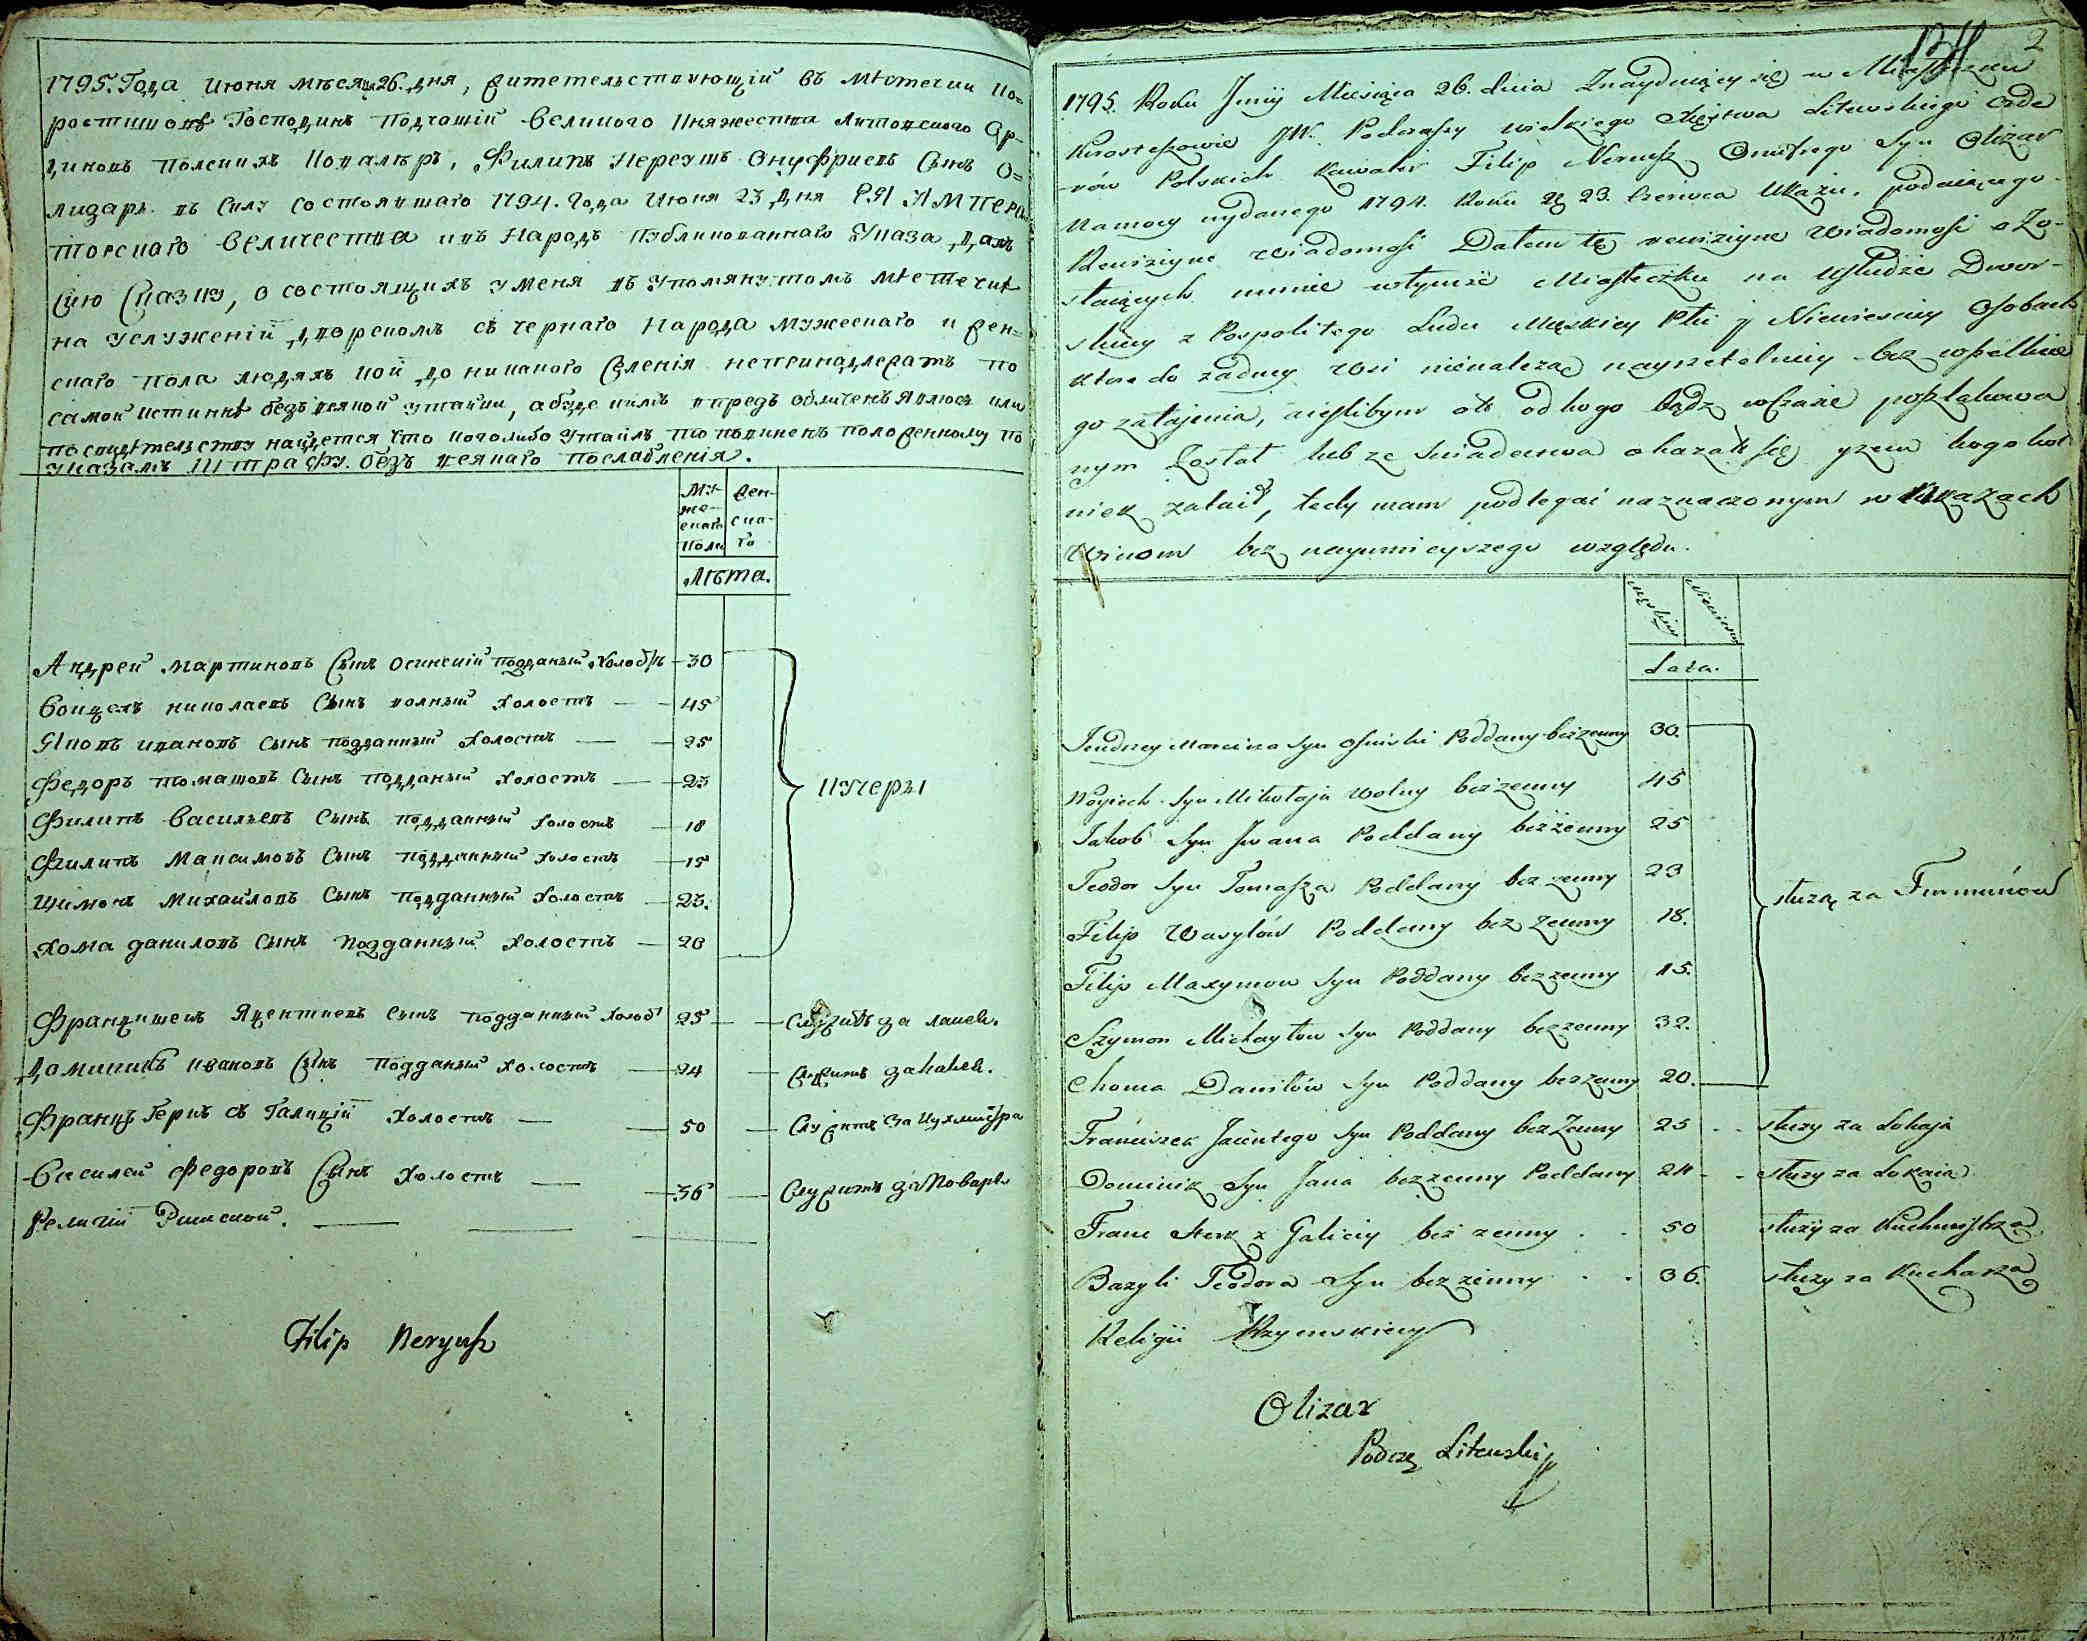 1795. Года Июня мѣсяца 26. дня, жительствующій въ мѣстечки Ко=
ростишовѣ Господинъ Подчашій Великого Княжества Литовского Ор-
диновъ Полскихъ Кавалѣръ, Филипъ Нереушъ Онуфріевъ Сынъ О=
лизаръ въ Силу состоявшаго 1794. Года Июня 23 Дня ЕЯ ИМПЕРА
торскаго Величества въ Народъ Публикованнаго Указа, Далъ
Сию Сказку, о состоящихъ у меня въ упомянутомъ мѣстечкѣ
на услуженіи Дворскомъ съ чернаго Народа мужескаго и жен=
скаго пола людяхъ кои до никакого селенія непринадлежатъ по
самой истиннѣ безъ всякой утайки, а буде кимъ впредъ обличенъ явлюсь или
по свидѣтельству найдется что кого либо утаилъ то повиненъ положенному по
указамъ Штрафу. безъ всякаго послабленія.
Му-
же-
скаго
Пола
Жен-
ска-
го
Лѣта.
Андрей Мартиновъ Сынъ Осинскій подданый Холостъ 30
Войцехъ николаевъ Сынъ волный Холостъ — 45
Яковъ ивановъ сынъ подданный Холостъ — 25
Федоръ томашовъ Сынъ подданый Холостъ — 23
Филипъ васильевъ Сынъ подданный Холостъ — 18
Филипъ максимовъ Сынъ подданный Холостъ — 15
Шимонъ михайловъ Сынъ подданный Холостъ — 23.
Хома даниловъ Сынъ подданный Холостъ — 20
Кучеры
Францишекъ Яцентиевъ Сынъ подданный Холос 25 — Служитъ за лакея.
Доминикъ ивановъ Сынъ подданый холостъ — 24 — Служитъ за лакея.
Францъ Геркъ съ Галиціи Холостъ — 50 — Служитъ за Кухмистра
Василей Федоровъ Сынъ Холостъ — 36 — Служитъ за Поваръ
Религіи Римской.
Filip Neryusz
2
1795. Roku Junij Miesiąca 26. dnia Znayduiący się w Miasteczku
Korosteszowie JW. Podczaszy wielkiego Xięstwa Litewskiego Orde
-rów Polskich Kawaler Filip Neriusz Onufrego Syn Olizar
Na mocy wydanego 1794. Roku 23. Czerwca Ukazu, podaiącego
Rewizyine wiadomości Dałem tę rewizyine wiadomość o Zo-
staiących u mnie w tymże Miasteczku na usłudze Dwor-
skiey z Pospolitego Ludu Męskiey Płci y Niewiesciey Osobach
które do żadney wsi nienależą nayrzetelniey bez wszelkie
go zatajenia, ieslibym oto od kogo bądz w czasie poszlakowa
nym Został lub ze swiadectwa okazało się żem kogokol
niek zataił, tedy mam podlegać naznaczonym w Ukazach
Winom bez naymnieyszego względu.
męskiey
Niewiesciey
Lata.
Jendrzey Marcina Syn Osinski Poddany bezżenny 30.
Woyciech Syn Mikołaja wolny bezżenny 45
Jakob Syn Jwana Poddany bezżenny 25
Teodor Syn Tomasza Poddany bezżenny 23
Filip Wasylów Poddany bez żenny 18.
Filip Maxymow Syn Poddany bezżenny 15.
Szymon Michayłow Syn Poddany bezżenny 32.
Choma Daniłów Syn Poddany bezżenny 20.
służą za Furmanów
Franciszek Jacentego Syn Poddany bezżenny 25 służy za Lokaja
Dominik Syn Jana bezżenny Poddany 24 służy za Lokaia
Franc Herk z Galicij bez żenny 50 służy za Kuchmistrza
Bazyli Teodora Syn bezżenny 36. służy za Kucharza
Religii Rzymskiey
Olizar
Podcz Litewskij